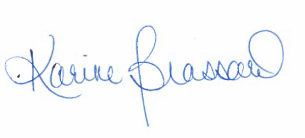 Karine Brassard